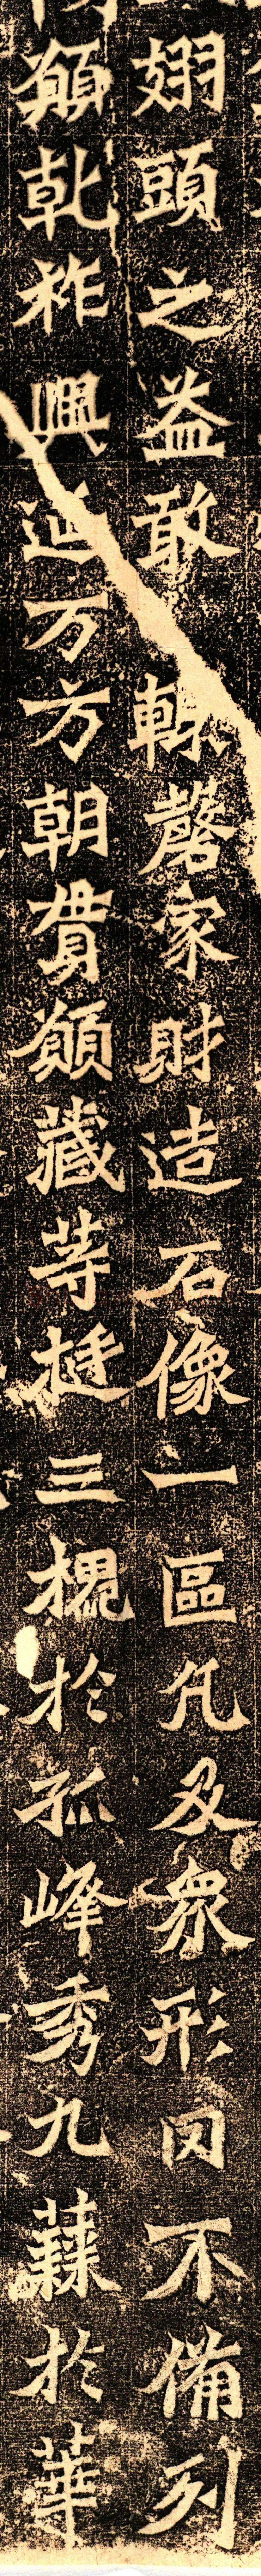 翅頭之益敢輒罄家財造石像一區凡及眾形罔不備列
願乾祚興延万方朝貫願藏等挺三槐於孤峰秀九蕀於華